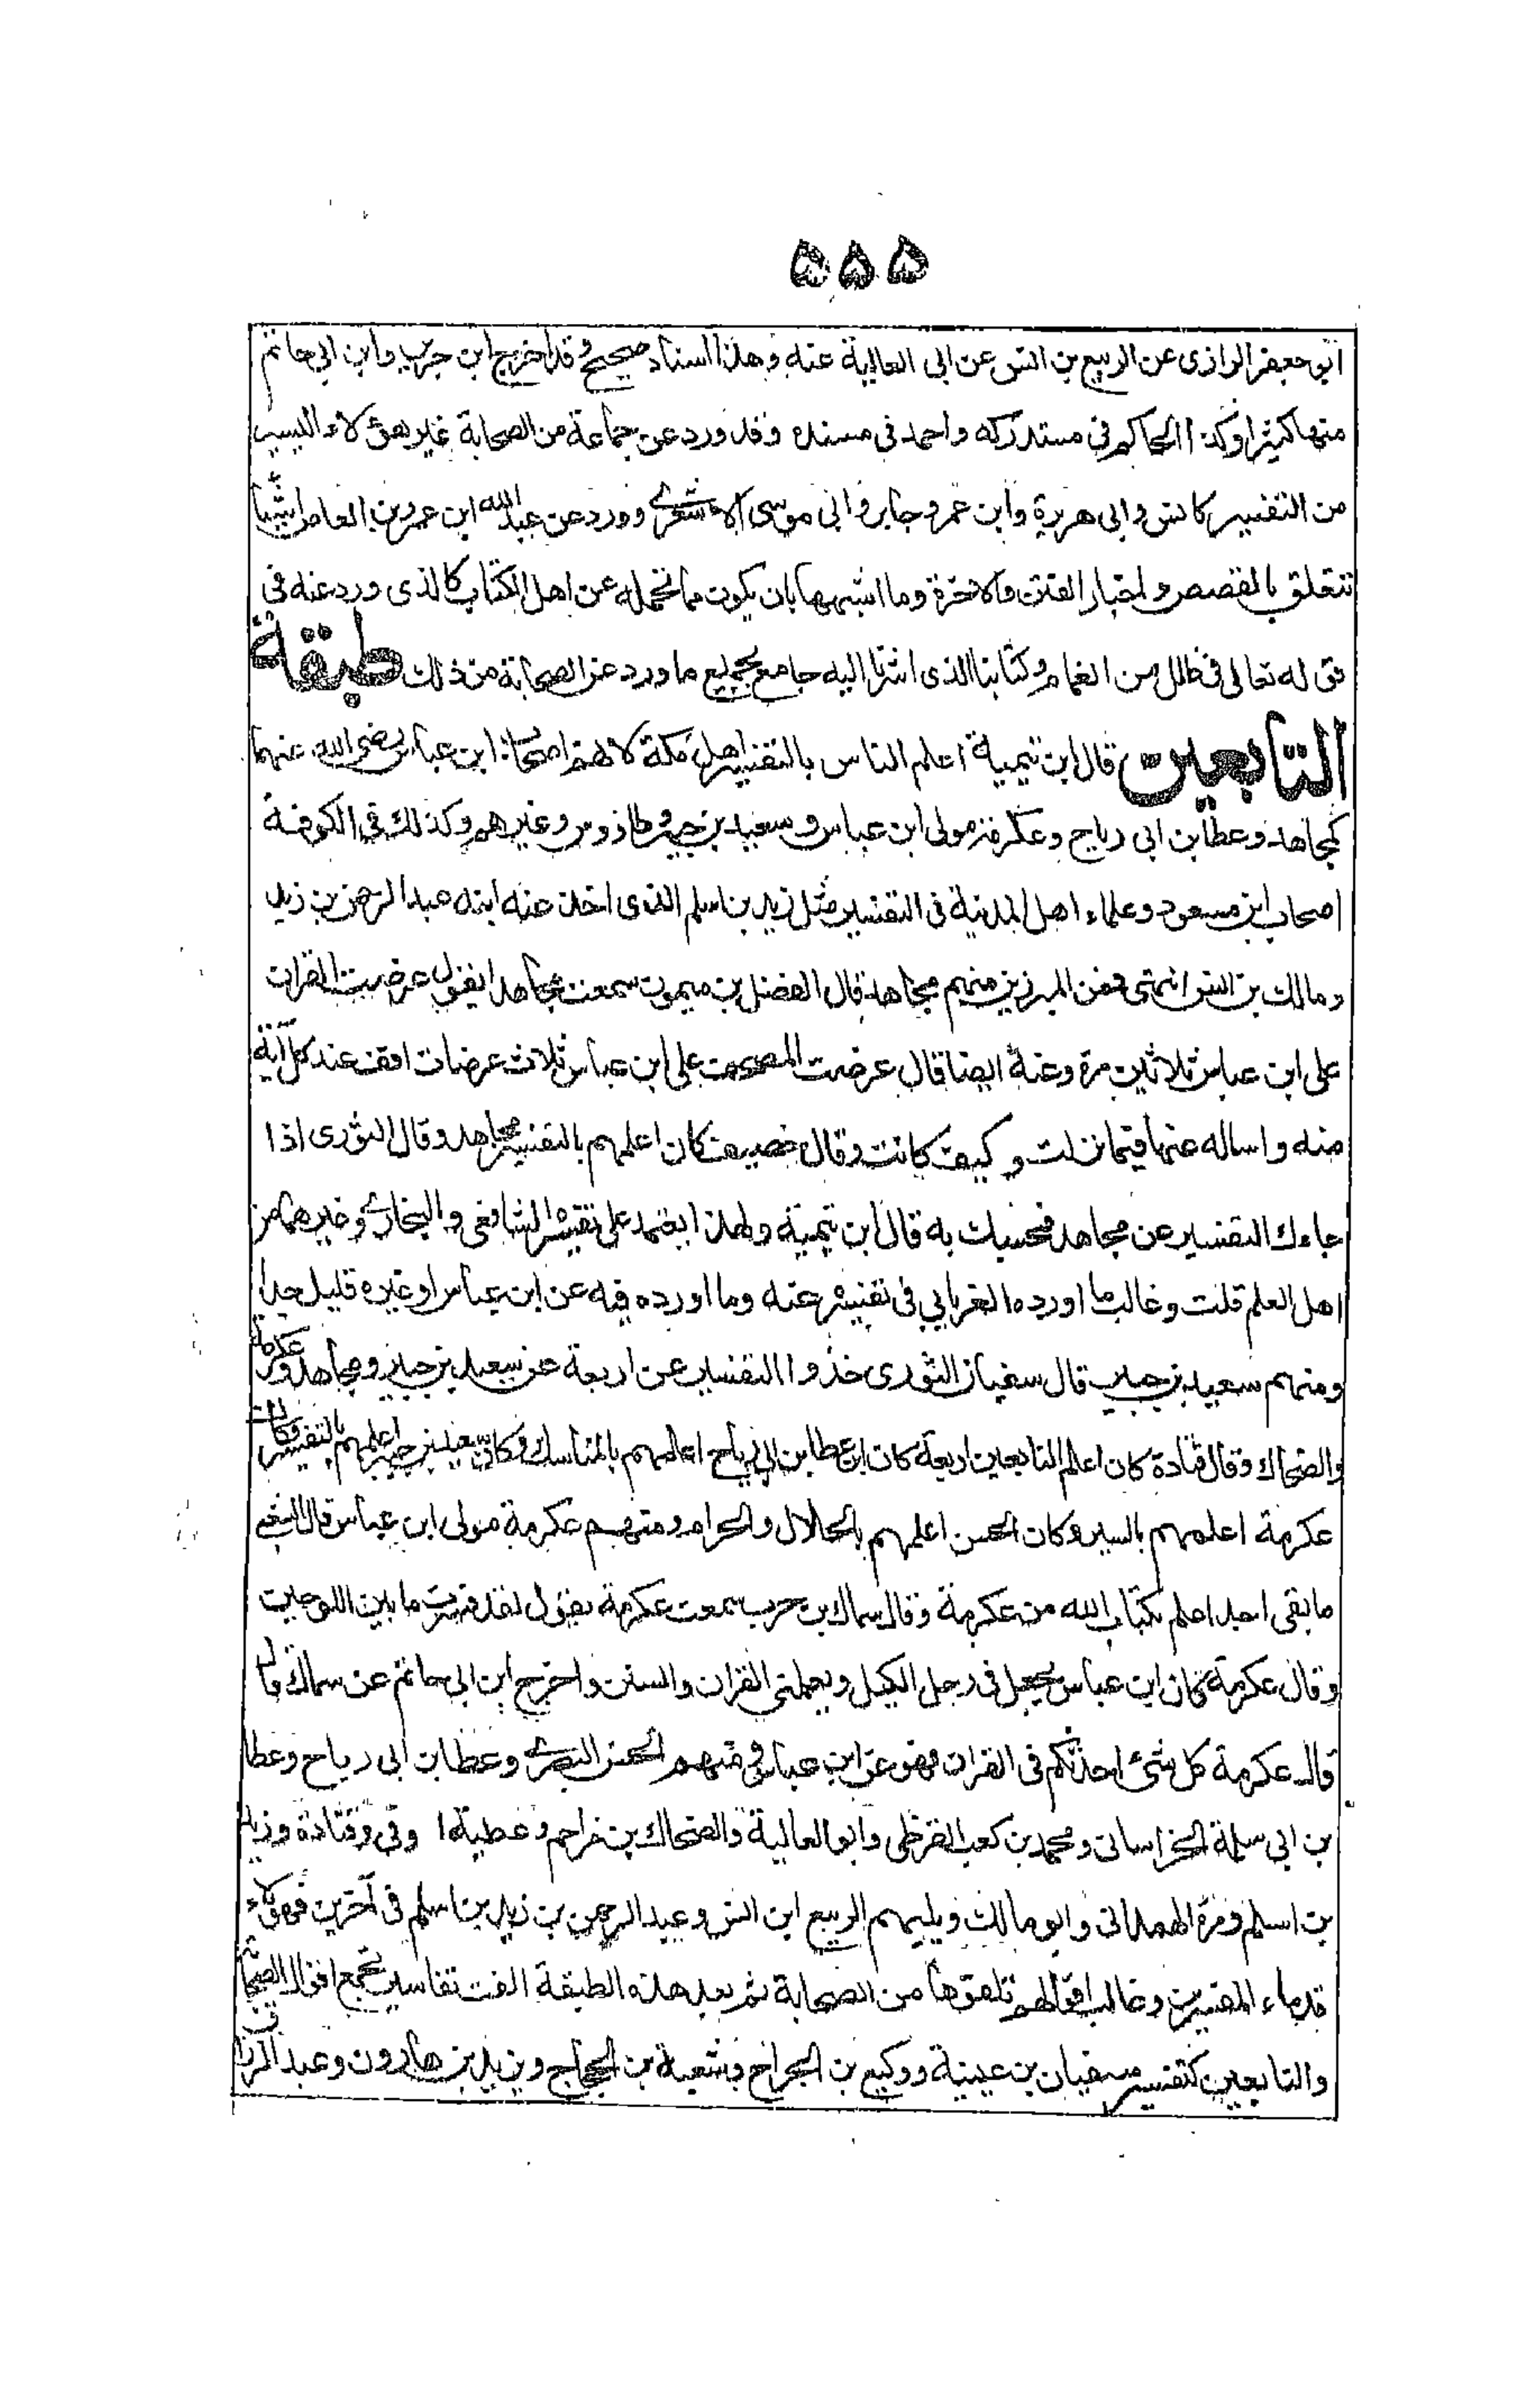 ۵۵۵
ابو جعفر الرازى عن الربيع بن انس عن ابى العالية عنه وهذا اسناد صحيح وقد اخرج ابن جرير وابن ابى حاتم
منها كثيرا وكذا الحاكم فى مستدركه واحمد فى مسنده وقد ورد عن جماعة من الصحابة غير هؤلاء اليسير
من التفسير كانس وابى هريرة وابن عمر وجابر وابى موسى الاشعرى وورد عن عبد الله ابن عمرو بن العاص اشياء
تتعلق بالقصص واخبار الفتن والاخرة وما اشبهها بان يكون مما تحمله عن اهل الكتاب كالذى ورد عنه فى
قوله تعالى فى ظلل من الغمام وكتابنا الذى اشرنا اليه جامع لجميع ما ورد عن الصحابة من ذلك طبقة
التابعين قال ابن تيمية اعلم الناس بالتفسير اهل مكة لانهم اصحاب ابن عباس رضى الله عنهما
كمجاهد وعطا بن ابى رباح وعكرمة مولى ابن عباس وسعيد بن جبير وطاؤس وغيرهم وكذلك فى الكوفة
اصحاب ابن مسعود وعلماء اهل المدينة فى التفسير مثل زيد بن اسلم الذى اخذ عنه ابنه عبد الرحمن بن زيد
ومالك بن انس انتهى فمن المبرزين منهم مجاهد قال الفضل بن ميمون سمعت مجاهدا يقول عرضت القران
على ابن عباس ثلاثين مرة وعنه ايضا قال عرضت المصحف على ابن عباس ثلاث عرضات اقف عند كل آية
منه واساله عنها فيما نزلت وكيف كانت وقال خصيف كان اعلمهم بالتفسير مجاهد وقال الثورى اذا
جاءك التفسير عن مجاهد فحسبك به قال ابن تيمية ولهذا يعتمد على تفسيره الشافعى والبخارى وغيرهما من
اهل العلم قلت وغالب ما اورده الفريابي فى تفسيره عنه وما اورده فيه عن ابن عباس او غيره قليل جدا
ومنهم سعيد بن جبير قال سفيان الثورى خذوا التفسير عن اربعة عن سعيد بن جبير ومجاهد وعكرمة
والضحاك وقال قتادة كان اعلم التابعين اربعة كان عطا بن ابى رباح اعلمهم بالمناسك وكان سعيد بن جبير اعلمهم بالتفسير وكان
عكرمة اعلمهم بالسير وكان الحسن اعلمهم بالحلال والحرام ومنهم عكرمة مولى ابن عباس قال الشعبى
ما بقى احد اعلم بكتاب الله من عكرمة وقال سماك بن حرب سمعت عكرمة يقول لقد فسرت ما بين اللوحين
وقال عكرمة كان ابن عباس يجعل فى رجل الكيل ويعلمنى القران والسنن واخرج ابن ابى حاتم عن سماك قال
قال عكرمة كل شئ احدثكم فى القران فهو عن ابن عباس ومنهم الحسن البصرى وعطا بن ابى رباح وعطا
بن ابى سلمة الخراسانى ومحمد بن كعب القرظى وابو العالية والضحاك بن مزاحم وعطية العوفى وقتادة وزيد
بن اسلم ومرة الهمدانى وابو مالك ويليهم الربيع ابن انس وعبد الرحمن بن زيد بن اسلم فى آخرين فهؤلاء
قدماء المفسرين وغالب اقوالهم تلقوها من الصحابة ثم بعد هذه الطبقة الفت تفاسير تجمع اقوال الصحابة
والتابعين كتفسير سفيان بن عيينة ووكيع بن الجراح وشعبة بن الحجاج ويزيد بن هارون وعبد الرزاق